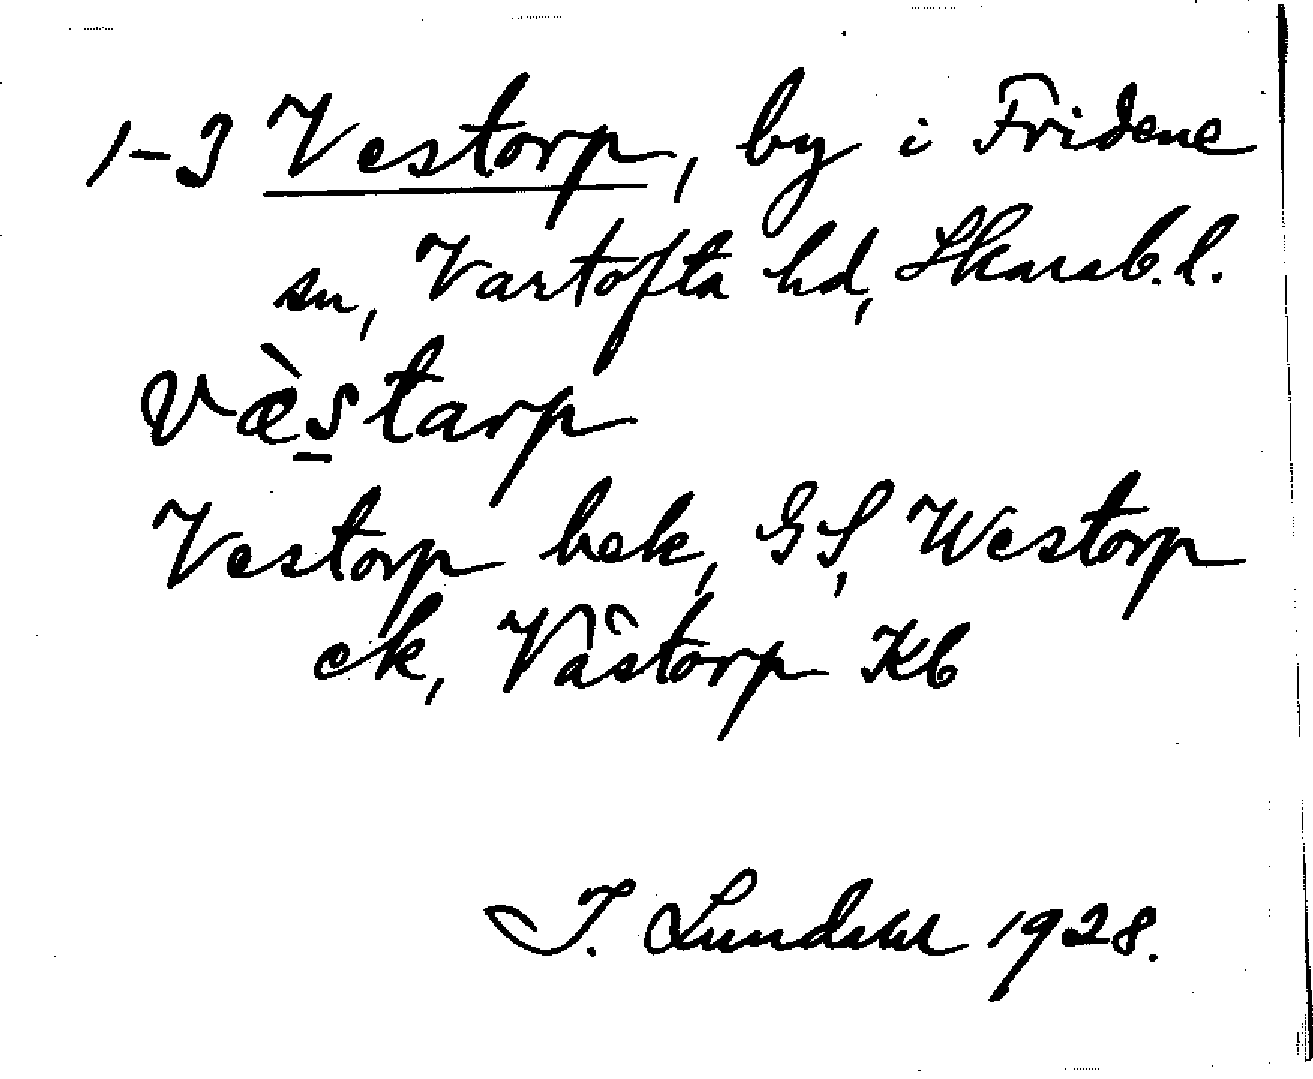 1-3 Vestorp, by i Fridene
sn, Vartofta hd, Skarab.l.
væ̀s̲tarp
Vestorp bek, GS, Westorp
ek, Våstorp Kb
I. Lundahl 1928.